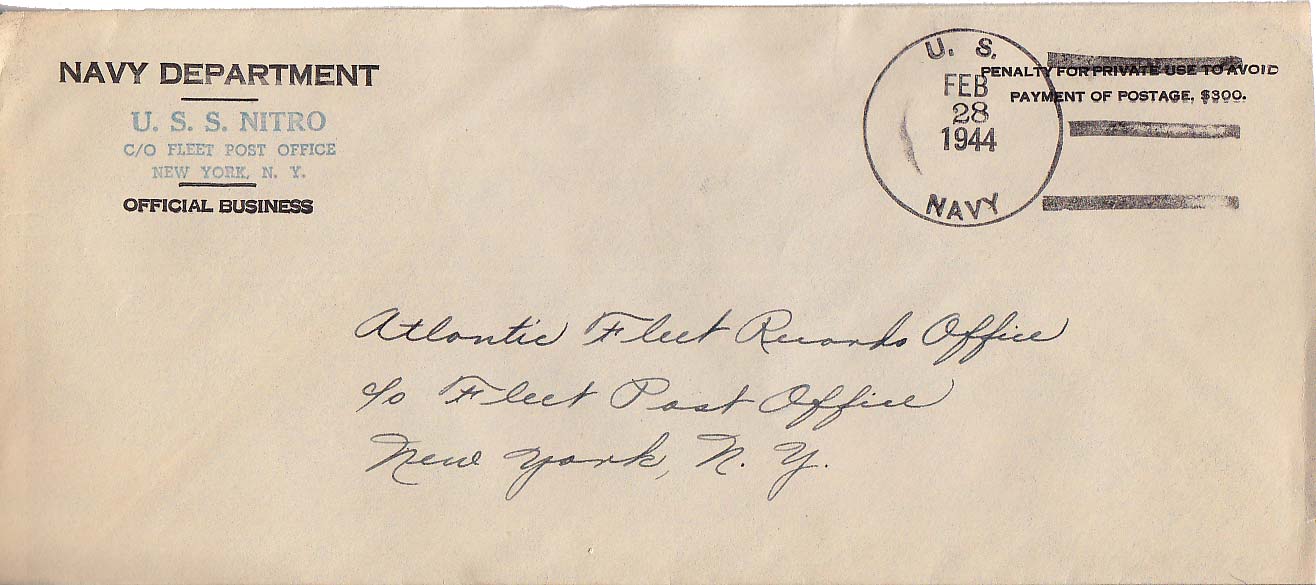 NAVY DEPARTMENT
U. S. S. NITRO
C/O FLEET POST OFFICE
NEW YORK, N. Y.
OFFICIAL BUSINESS
U. S.
FEB
28
1944
NAVY
PENALTY FOR PRIVATE USE TO AVOID
PAYMENT OF POSTAGE, $300.
Atlantic Fleet Records Office
c/o Fleet Post Office
New York, N. Y.